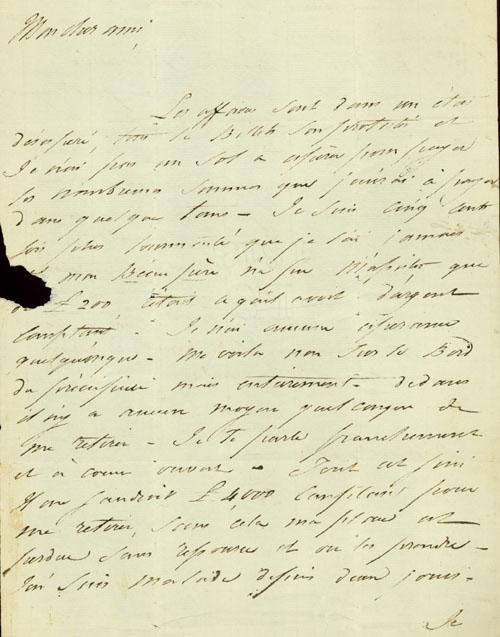 Mon cher ami
Les affaires sont dans un état
désesperé, tous les Bills sont protestés et
Je n'ai pas un sol a espérer pour payer
les nombreuses sommes que j'aurai à payer
dans quelque tems - Je suis cinq cents
fois plus tourmenté que je l'ai jamais
mon Beau frère n'a pu m'assister que
de £200, étant a qu'il avoit d'argent
comptant - Je n'ai aucune espérance
quelquonque - me voila non sur le Bord
du précipice mais entierement dedans
il n'y a aucun moyen quelconque de
me retirer - Je te parle franchement
et à coeur ouvert - Tout est fini
Il me faudroit £4000 comptant pour
me retirer, sans cela ma place est
perdue sans ressource et où les prendre -
J'en suis malade depuis deux jours -
Je